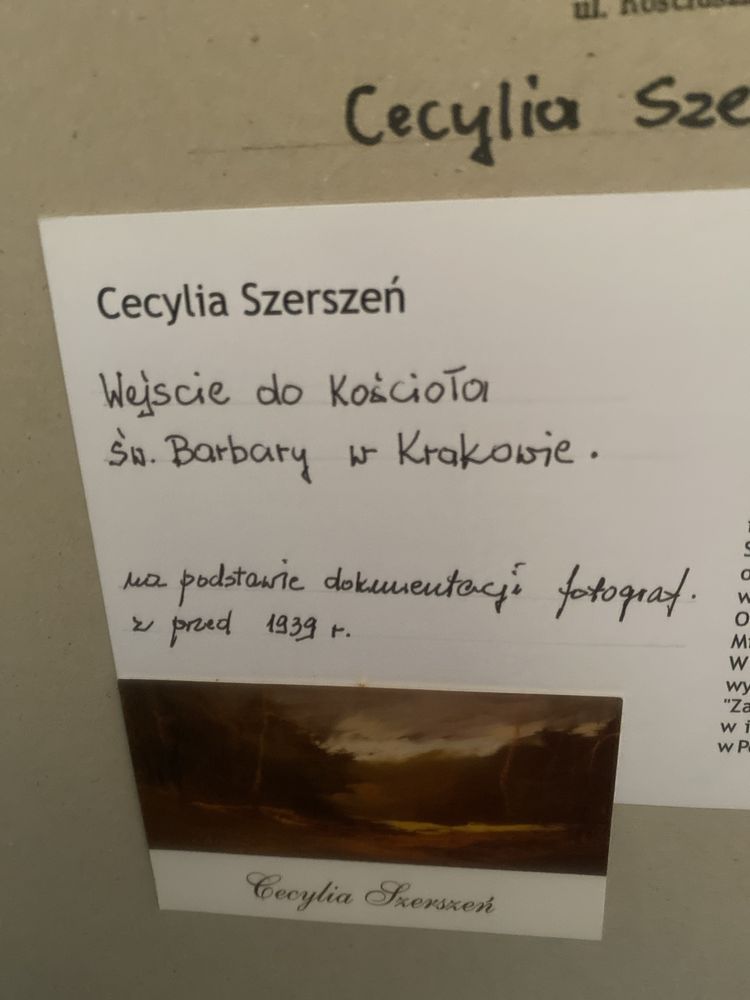 ul.
Cecylia
Cecylia Szerszeń
Wejscie do Kościoła
Św. Barbary w Krakowie.
na podstawie dokumentacji fotograf.
z przed 1939 r.
w
O
W
wy
"Za
w i
w
Cecylia Szerszeń